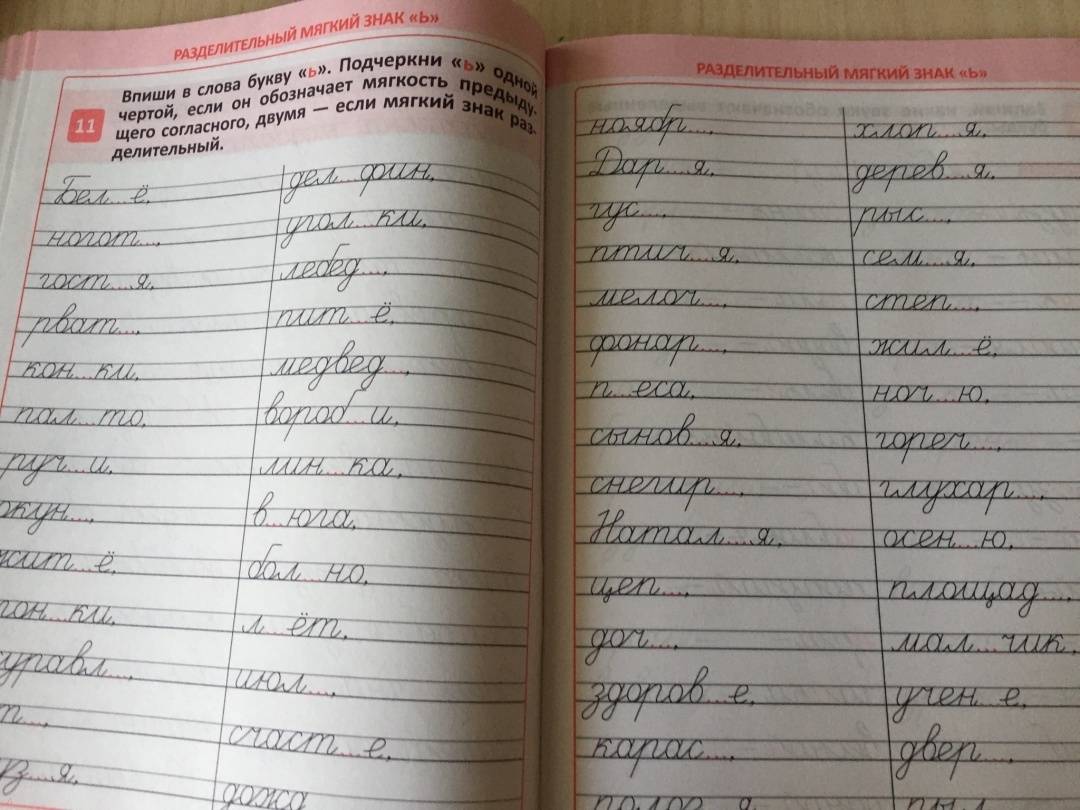 РАЗДЕЛИТЕЛЬНЫЙ МЯГКИЙ ЗНАК «Ь»
11
Впиши в слова букву «ь». Подчеркни «ь» одной
чертой, если он обозначает мягкость предыду-
щего согласного, двумя — если мягкий знак раз-
делительный.
Бел...ё. дел...фин.
ногот.... угол...ки.
гост...я. лебед....
рват.... пит...ё.
кон...ки. медвед....
пал...то. вороб...и.
руч...и. лин...ка.
окун.... в...юга.
жит...ё. бол...но.
...ки. л...ёт.
июл....
счаст...е.
РАЗДЕЛИТЕЛЬНЫЙ МЯГКИЙ ЗНАК «Ь»
ноябр.... хлоп...я.
Дар...я. дерев...я.
гус.... рыс....
птич...я. сем...я.
мелоч.... степ....
фонар.... жил...ё.
п...еса. ноч...ю.
сынов...я. гореч....
снегир.... глухар....
Натал...я. осен...ю.
цеп.... площад....
доч.... мал...чик.
здоров...е. учен...е.
карас.... двер....